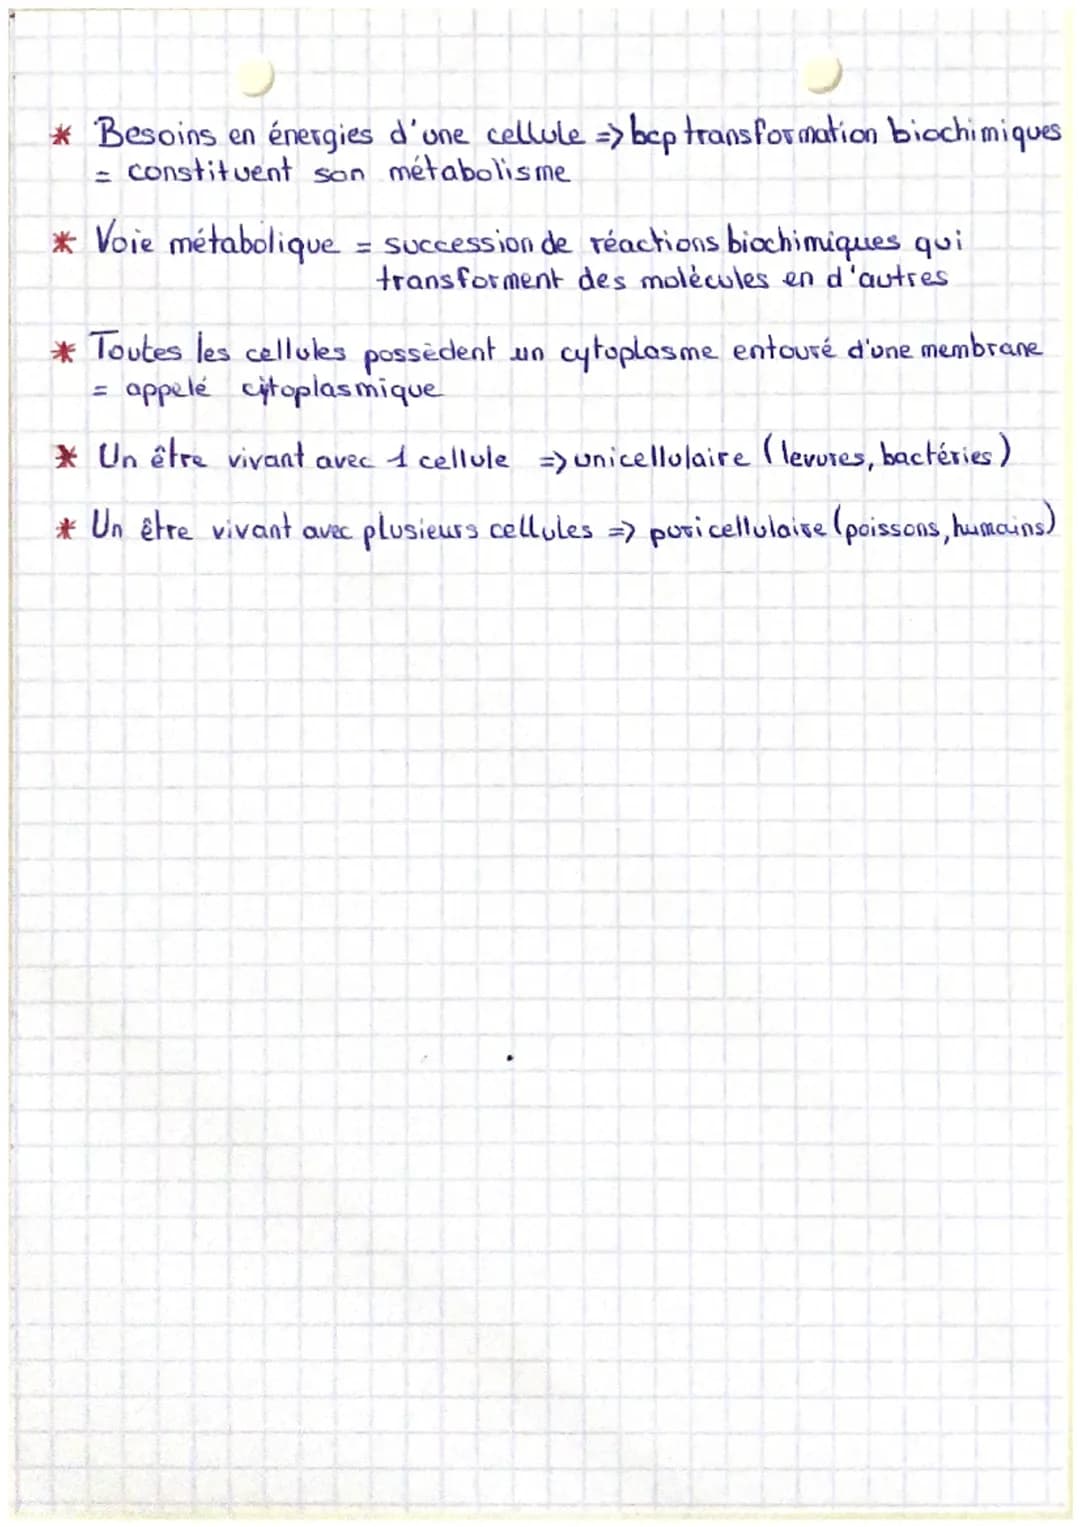 * Besoins en énergies d'une cellule => bcp transformation biochimiques
= constituent son métabolisme
* Voie métabolique = succession de réactions biochimiques qui
transforment des molécules en d'autres
* Toutes les cellules possèdent un cytoplasme entouré d'une membrane
= appelé citoplasmique
* Un être vivant avec 1 cellule => unicellulaire (levures, bactéries)
* Un être vivant avec plusieurs cellules => puricellulaire (poissons, humains)